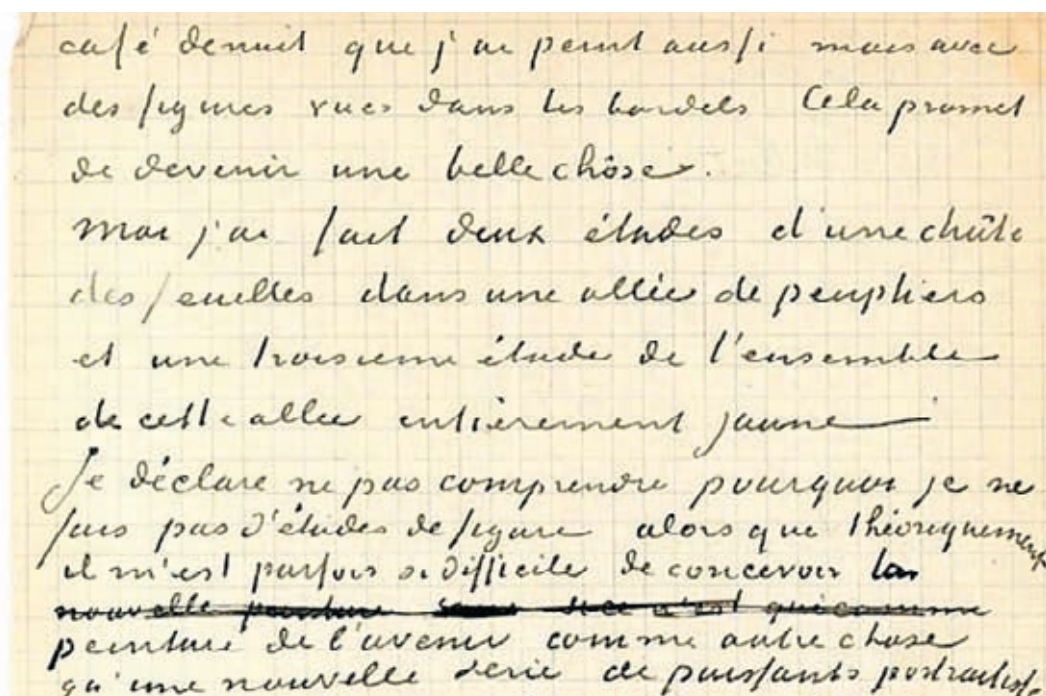 café de nuit que j'ai peint aussi mais avec
des figures vues dans les bordels Cela promet
de devenir une belle chôse.
moi j'ai fait deux études d'une chûte
des feuilles dans une allée de peupliers
et une troisieme étude de l'ensemble
de cette allée entièrement jaune
Je déclare ne pas comprendre pourquoi je ne
fais pas d'études de figure alors que théoriquement
il m'est parfois si difficile de concevoir la
nouvelle peinture si ce n'est que comme
peinture de l'avenir comme autre chose
qu'une nouvelle serie de puissants portraitistes